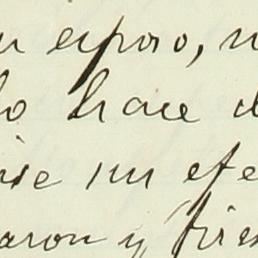 esposo,
lo hace d
ise un efe
aron y fires